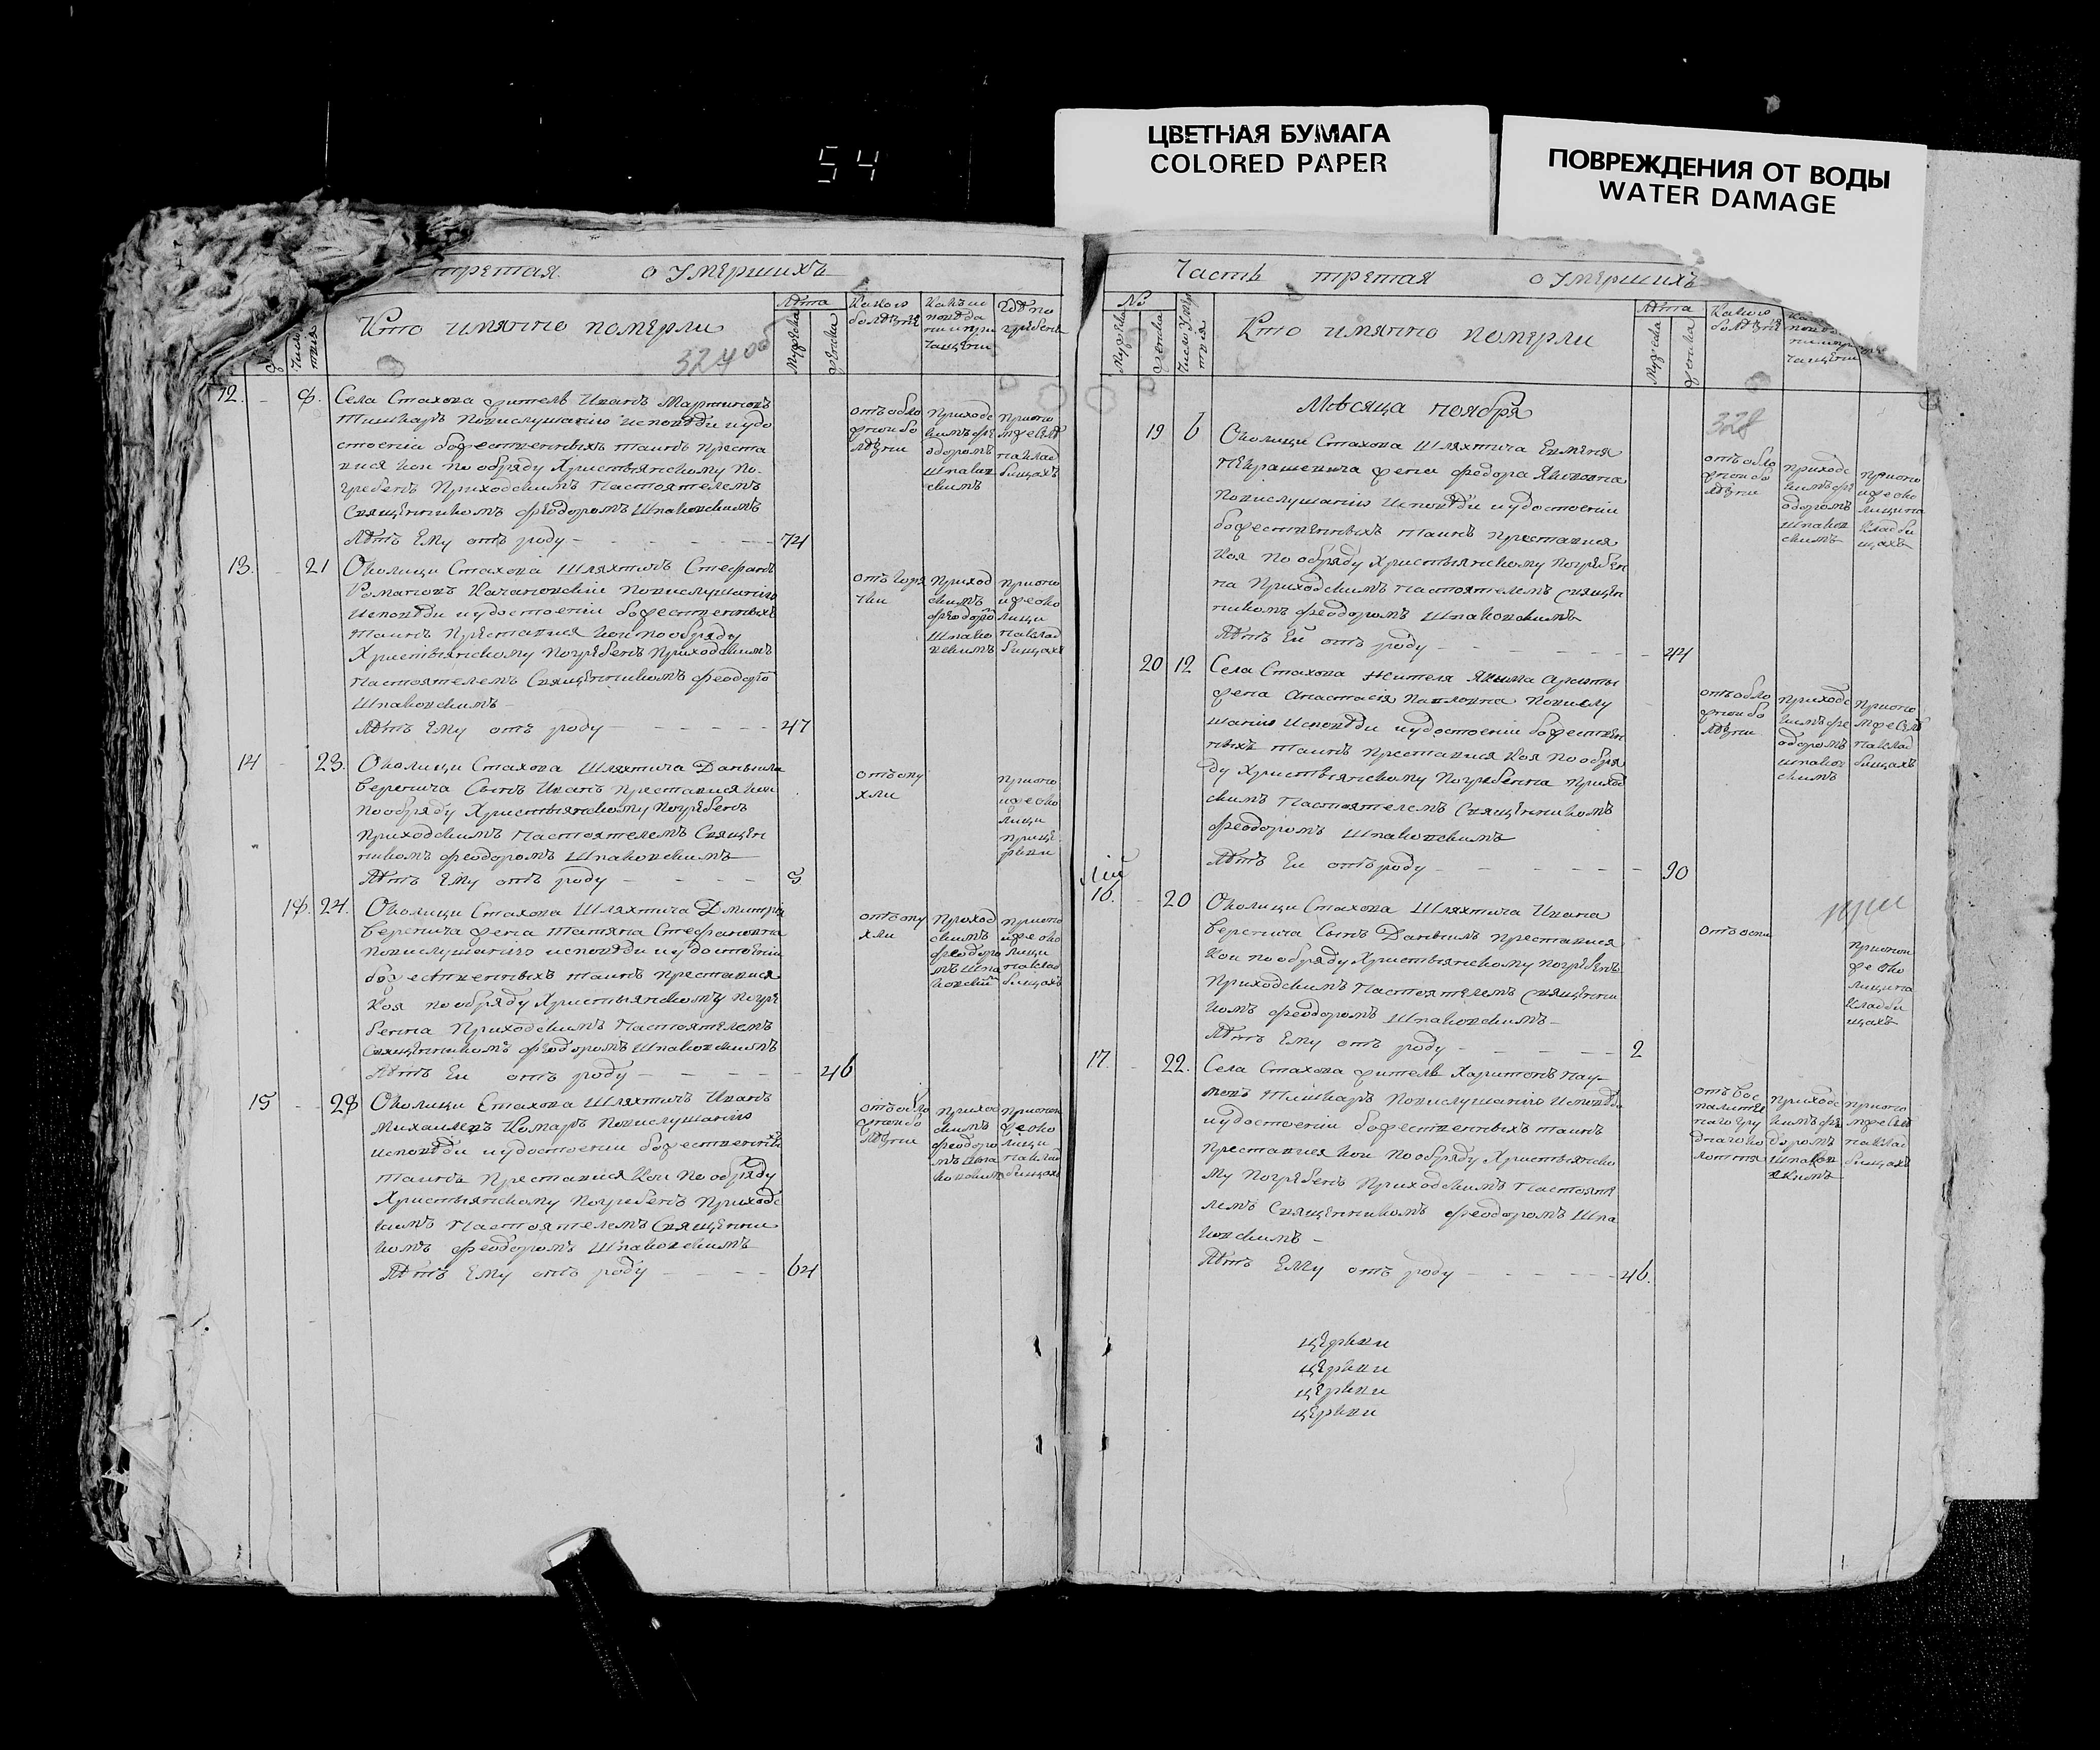 54
ЦВЕТНАЯ БУМАГА
COLORED PAPER
ПОВРЕЖДЕНИЯ ОТ ВОДЫ
WATER DAMAGE
третая о Умершихъ
Число
Кто имянно померли
Лѣта
Мужеска
Женска
Какою болѣзнію
Кѣмъ исповѣданы и прі чащены
Гдѣ по гребены
324 об
12. 8. Села Стахова житель Иванъ Мартиновъ
Тишкаръ по выслушанію исповѣди иудо
стоеніи божественныхъ таинъ преста
вися кои по обряду Христыянскому по-
гребенъ Приходскимъ Настоятелемъ
Священникомъ Феодоромъ Шпаковскимъ
Лѣтъ Ему отъ роду 74
отъ обло
жной бо
лѣзни
Приходс
кимъ Фе
одоромъ
Шпаков
скимъ
при оно
мже селѣ
на клад
бищахъ
13. 21 Околицы Стахова Шляхтичъ Стефанъ
Романовъ Качановскій по выслушанію
Исповѣди иудостоеніи божественныхъ
таинъ Преставися кои по обряду
Христыянскому Погребенъ Приходскимъ
Настоятелемъ Священникомъ Феодоро
Шпаковскимъ
Лѣтъ Ему отъ роду 47
отъ горя
чки
Приход
скимъ
Феодоро
Шпако
вскимъ
при оно
йже око
лици
на клад
бищахъ
14 23. Околицы Стахова Шляхтича Даныила
Веренича Сынъ Иванъ Преставися кои
по обряду Христыянскому Погребенъ
Приходскимъ Настоятелемъ Священ
никомъ Феодоромъ Шпаковскимъ
Лѣтъ Ему отъ роду 5
отъ опу
хли
при оно
йже око
лици
при це
ркви
18. 24. Околицы Стахова Шляхтича Дмитрія
Веренича жена Татяна Стефановна
по выслушанію исповѣди иудостоеніи
божественныхъ таинъ преставися
Коя по обряду Христыянскому погре
бенна Приходскимъ Настоятелемъ
Священникомъ Феодоромъ Шпаковскимъ
Лѣтъ Еи отъ роду 46
отъ опу
хли
Приход
скимъ
Феодоро
мъ Шпа
ковскій
при оно
йже око
лици
на клад
бищахъ
15 28 Околицы Стахова Шляхтичъ Иванъ
Михаиловъ Комаръ По выслушанію
исповѣди иудостоеніи божественны
таинъ преставися Кои по обряду
Христыянскому Погребенъ Приходс
кимъ Настоятелемъ Священни
комъ Феодоромъ Шпаковскимъ
Лѣтъ Ему отъ роду 64
отъ обло
жной бо
лѣзни
Приход
скимъ
Феодоро
мъ Шпа
ковским
при оной
же око
лици
на клад
бищахъ
Часть третая о Умершихъ
№
Мужеска
Женска
Число Умер
твія
Кто имянно померли
Лѣта
Мужеска
Женска
Какою болѣзнію
328
Мѣсяца ноября
19 6 Околицы Стахова Шляхтича Еимения
Некрашевича жена Федора Якимовна
По выслушанію Исповѣди иудостоеніи
божественныхъ таинъ преставися
Коя по обряду Христыянскому погребен
на Приходскимъ настоятелемъ Священ
никомъ Феодоромъ Шпаковскимъ
Лѣтъ Еи отъ роду 44
отъ обло
жной бо
лѣзни
приходс
кимъ Фе
одоромъ
Шпаков
скимъ
при оно
йже око
лици на
Кладби
щахъ
20 12 Села Стахова Жителя Якыма
жена Анастасія Павловна По выслу
шанію Исповѣди иудостоеніи божествен
ныхъ таинъ преставися Коя по обря
ду Христыянскому Погребенна Приход
скимъ Настоятелемъ Священникомъ
Феодоромъ Шпаковскимъ
Лѣтъ Еи отъ роду 90
отъ обло
жной бо
лѣзни
приходс
кимъ Фе
одоромъ
Шпаков
скимъ
при оно
мже селѣ
на клад
бищахъ
16. 20 Околицы Стахова Шляхтича Ивана
Веренича Сынъ Даныилъ преставися
Кои по обряду Христыянскому погребенъ
Приходскимъ Настоятелемъ Священни
комъ Феодоромъ Шпаковскимъ
Лѣтъ Ему отъ роду 2
отъ оспи
при оной
же око
лици на
Кладби
щахъ
17. 22. Села Стахова житель Харитонъ Нау-
мовъ Тишкаръ По выслушанію Исповѣди
иудостоеніи божественныхъ таинъ
преставися кои по обряду Христыянско
му Погребенъ Приходскимъ Настояте
лемъ Священникомъ Феодоромъ Шпа
ковскимъ
Лѣтъ Ему отъ роду 46.
отъ вос
палител
наго гру
днаго ко
лотья
приходс
кимъ Фе
доромъ
Шпаков
скимъ
при оно
мже селѣ
на клад
бищахъ
церкви
церкви
церкви
церкви